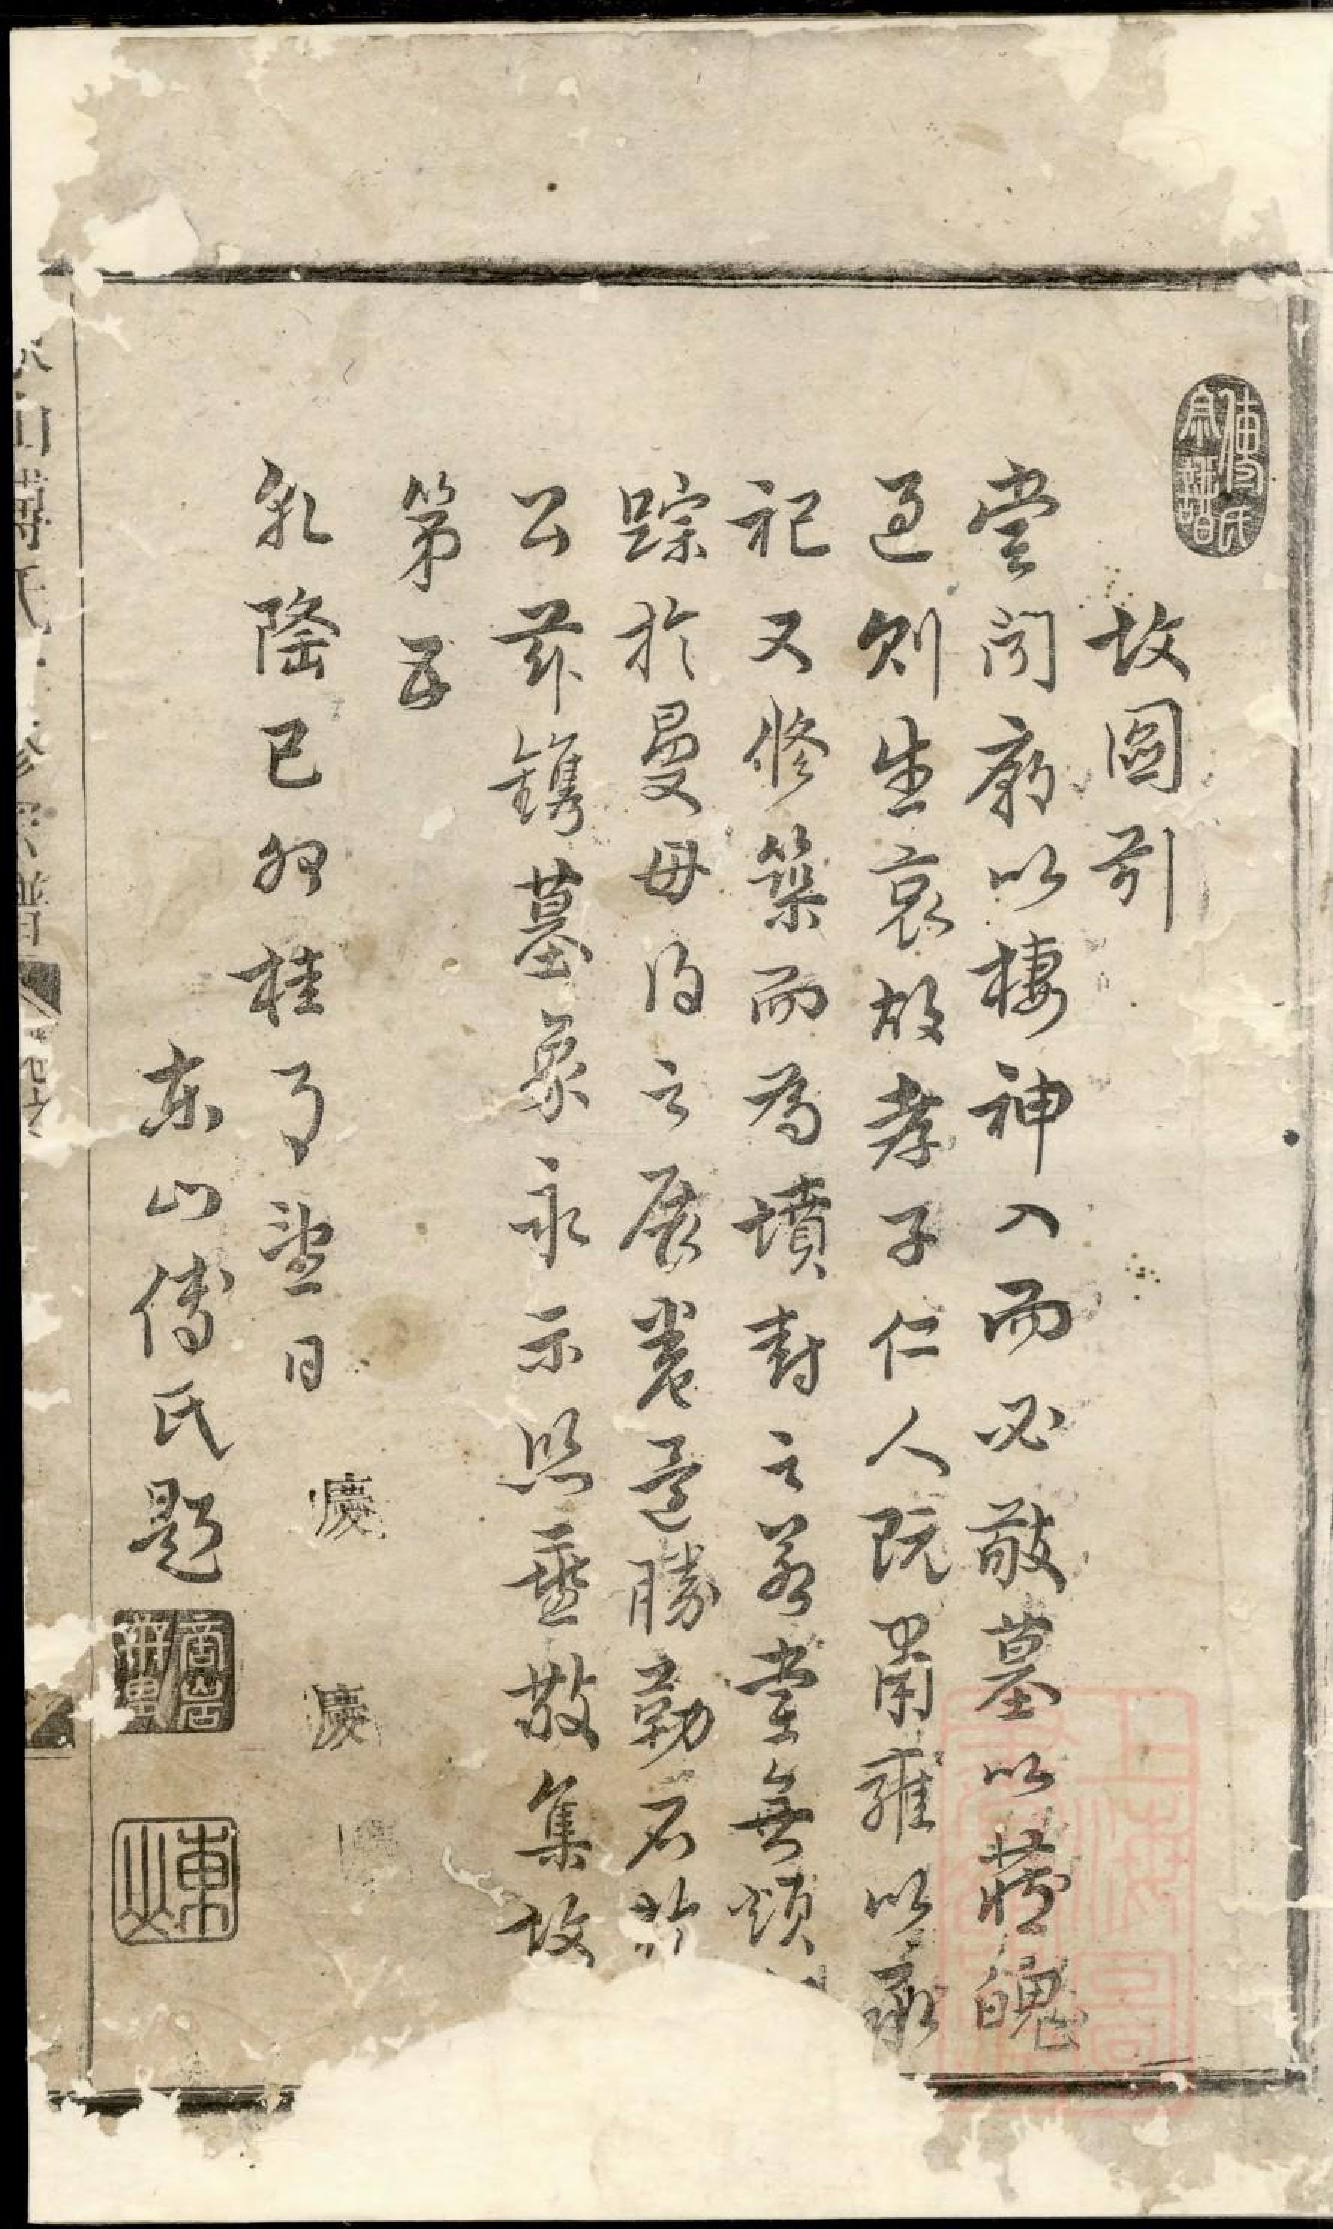 傅氏宗譜
故圖引
嘗聞廟以棲神入而必敬墓以藏魄
過則生哀故孝子仁人既肅雍以承
祀又修築而為墳封之若堂無煩
踪於曼母得之展卷還勝勒石於
公茲鐫墓象永示照垂敬集故
第五
乾隆己卯桂月望日
慶
慶
東山傅氏題
東山
上海圖書館藏